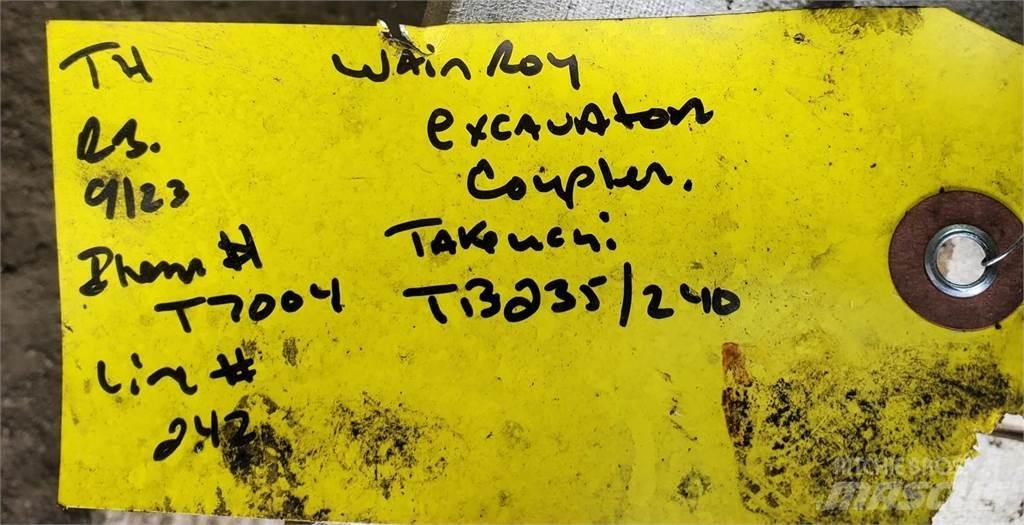 TH
RB.
9/23
Item #
T7004
Line #
242
Wain Roy
excavator
Coupler.
Takeuchi
TB235/240
RITCHIE BROS
MASCUS